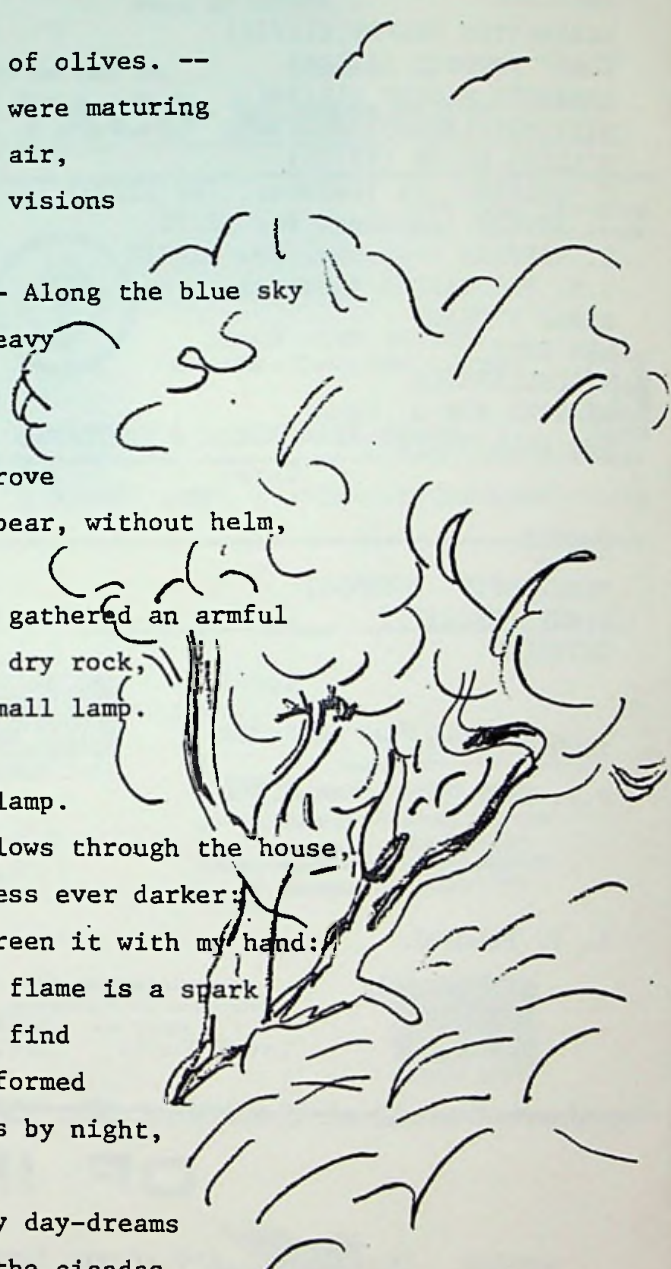 of olives. --
were maturing
air,
visions
- Along the blue sky
eavy
rove
pear, without helm,
gathered an armful
dry rock,
mall lamp.
lamp.
lows through the house,
ess ever darker:
reen it with my hand:
flame is a spark
find
formed
s by night,
y day-dreams
the cicadas